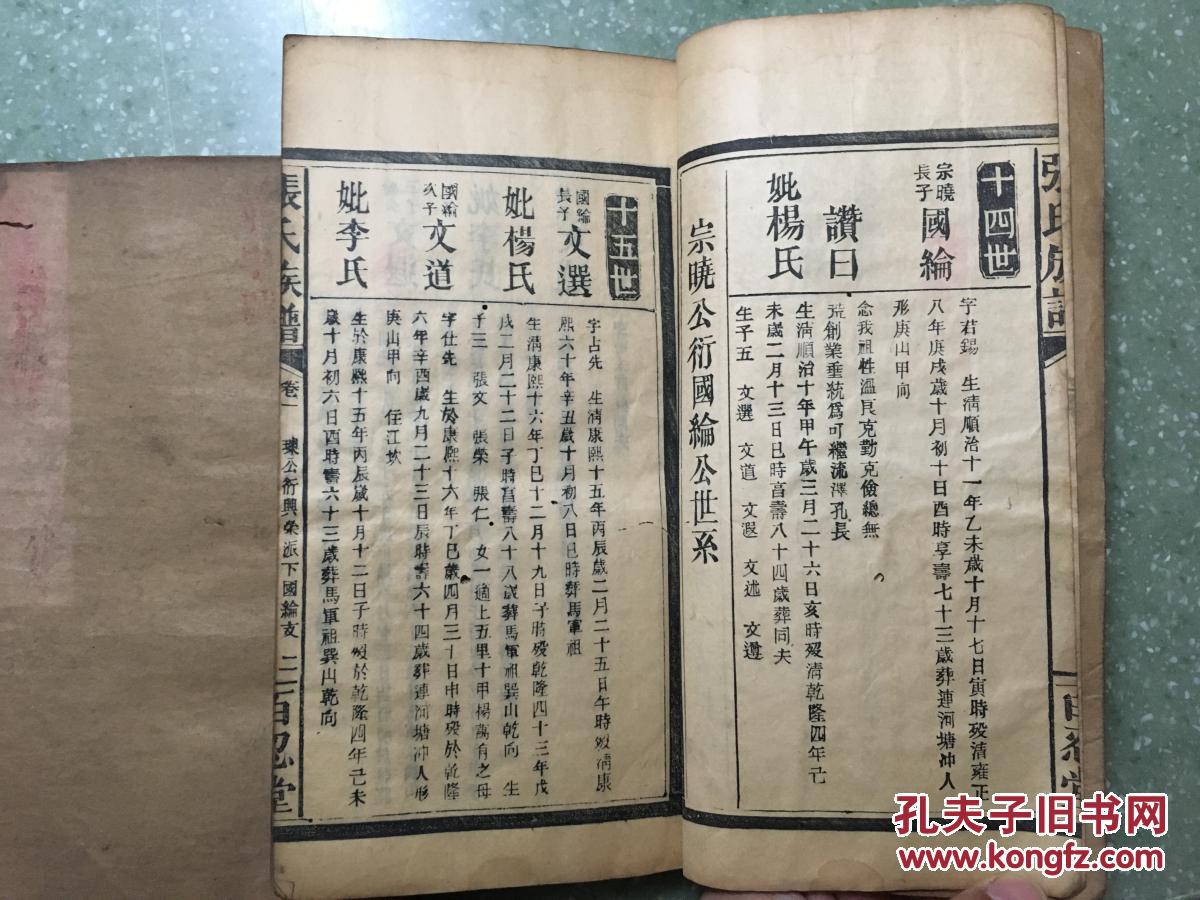 張氏族譜
百忍堂
十四世
宗曉長子 國綸
字君錫 生清順治十一年乙未歲十月十七日寅時歿清雍正
八年庚戌歲十月初十日酉時享壽七十三歲葬連河塘冲人
形庚山甲向
讚曰
念我祖性溫良克勤克儉總無
荒創業垂統爲可繼流澤孔長
妣楊氏
生清順治十年甲午歲三月二十六日亥時歿清乾隆四年己
未歲二月十三日巳時富壽八十四歲葬同夫
生子五 文選 文道 文遐 文述 文邊
宗曉公衍國綸公世系
十五世
國綸長子 文選
字占先 生清康熙十五年丙辰歲二月二十五日午時歿清康
熙六十年辛丑歲十月初八日巳時葬馬軍祖
妣楊氏
生清康熙十六年丁巳十二月十九日子時歿乾隆四十三年戊
戌二月二十二日子時富壽八十八歲葬馬軍祖巽山乾向 生
子三 張文 張榮 張仁 女一適上五里十甲楊萬有之母
國綸次子 文道
字仕先 生於康熙十六年丁巳歲四月三十日申時歿於乾隆
六年辛酉歲九月二十三日辰時壽六十四歲葬連河塘冲人形
庚山甲向 任江坎
妣李氏
生於康熙十五年丙辰歲十月十二日子時歿於乾隆四年己未
歲十月初六日酉時壽六十三歲葬馬軍祖巽山乾向
張氏族譜
卷一
公衍興榮派下國綸支
二
百忍堂
孔夫子旧书网
www.kongfz.com